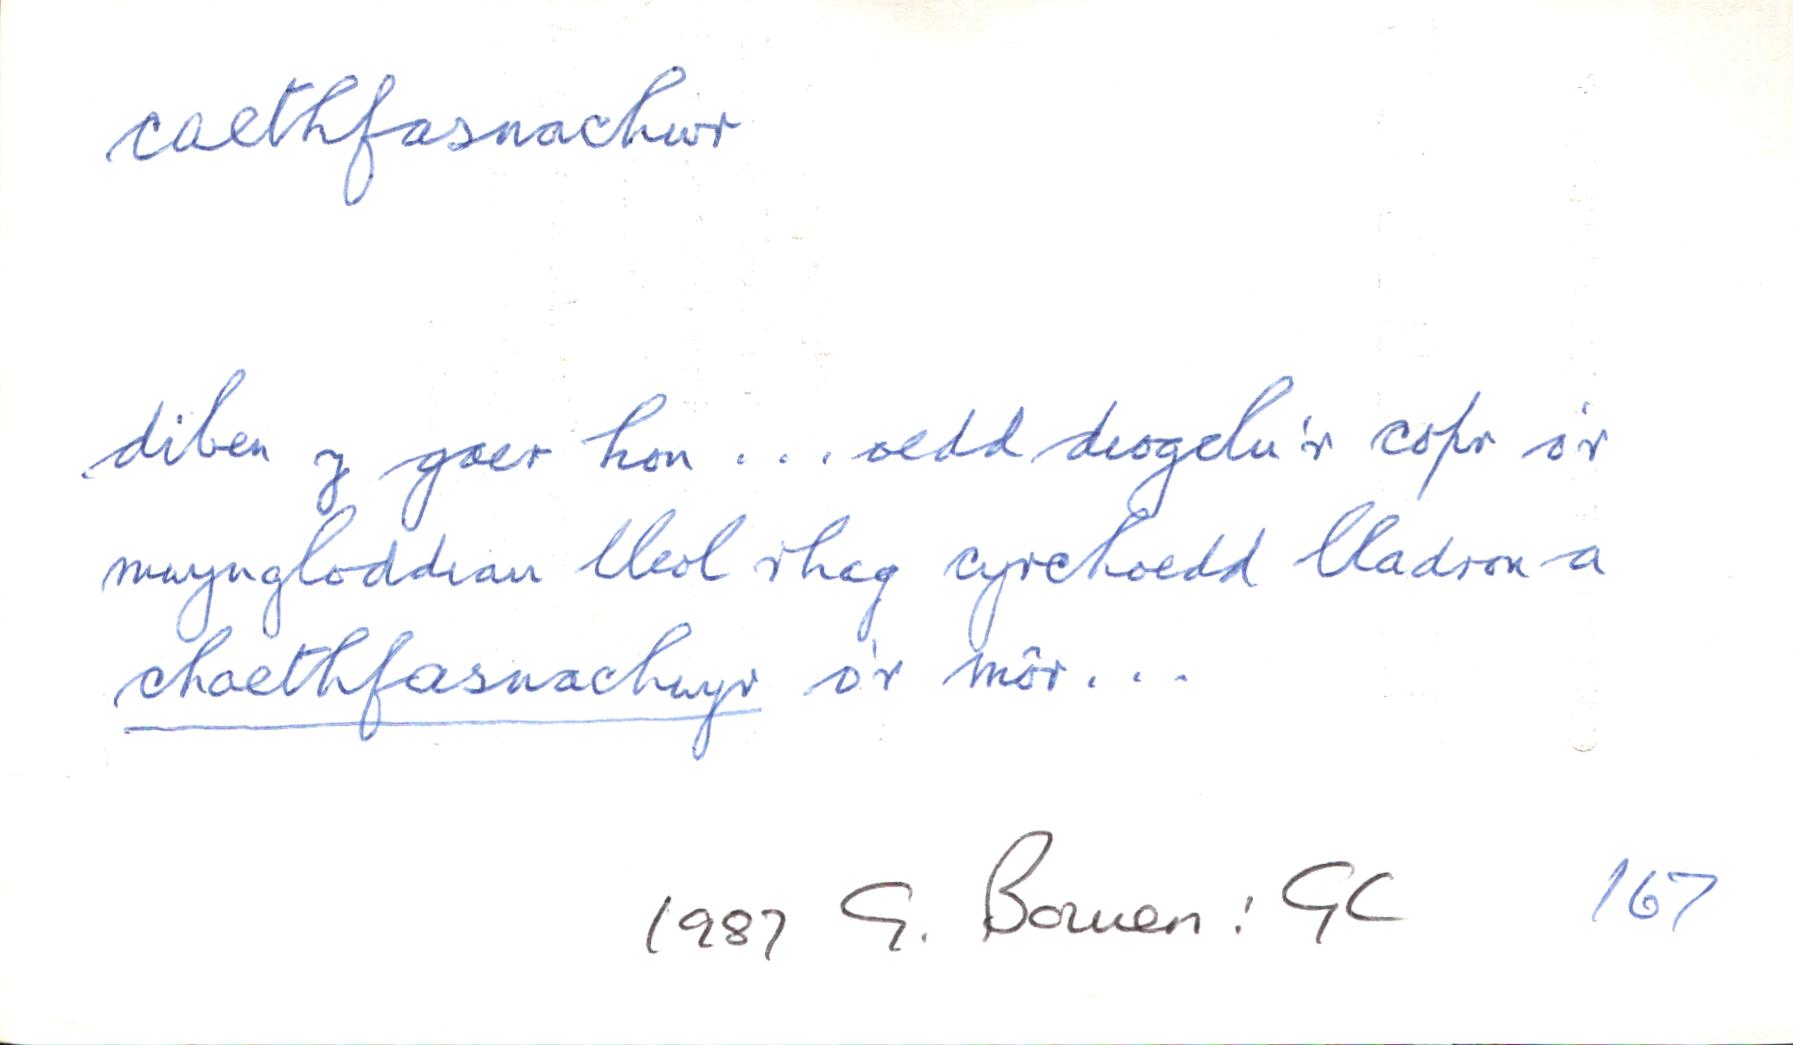 caethfasnachwr
diben y gaer hon ... oedd diogelu'r copr o'r
mwyngloddiau lleol rhag cyrchoedd lladron a
chaethfasnachwyr o'r môr...
1987 G. Bowen: GC 167